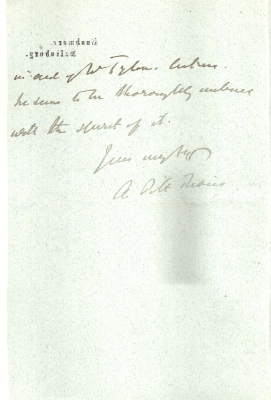 Rushmore,
Salisbury.
in aid of Mr Tylor's lectures.
he seems to be thoroughly imbued
with the spirit of it.
Yours very truly
A. Pitt Rivers